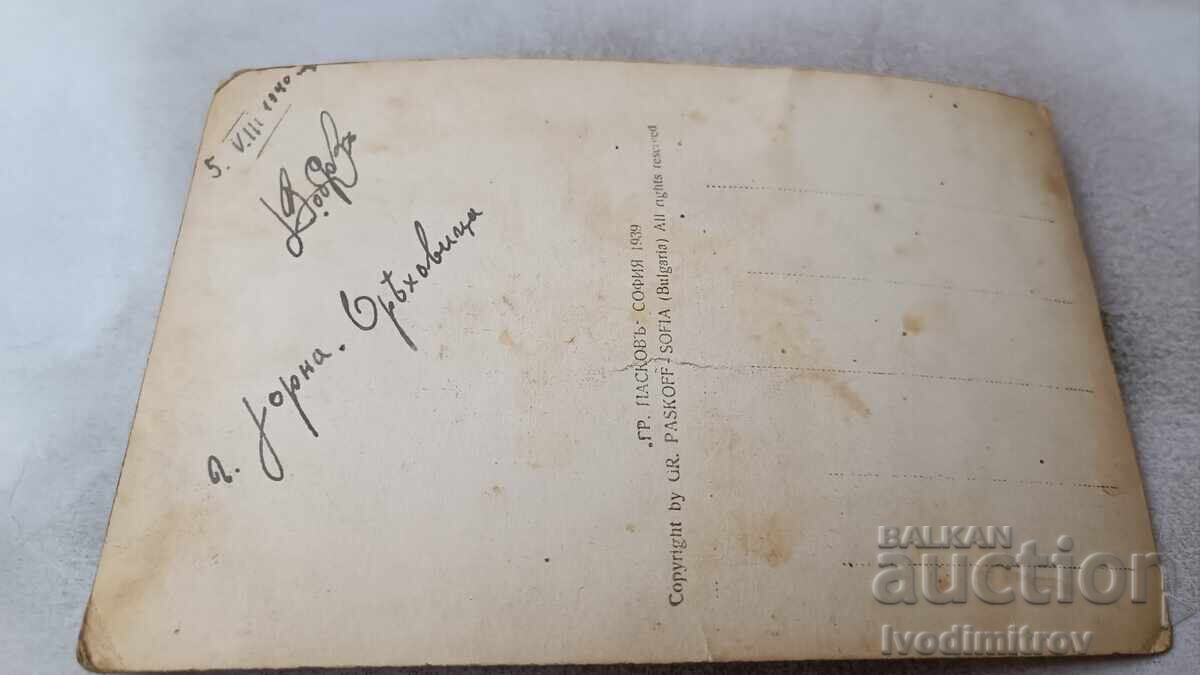 г. Горна. Орѣховица
5. VIII 1940
„ГР. ПАСКОВЪ" СОФИЯ 1939
Copyright by GR. PASKOFF - SOFIA (Bulgaria) All rights reserved
BALKAN
auction
Ivodimitrov